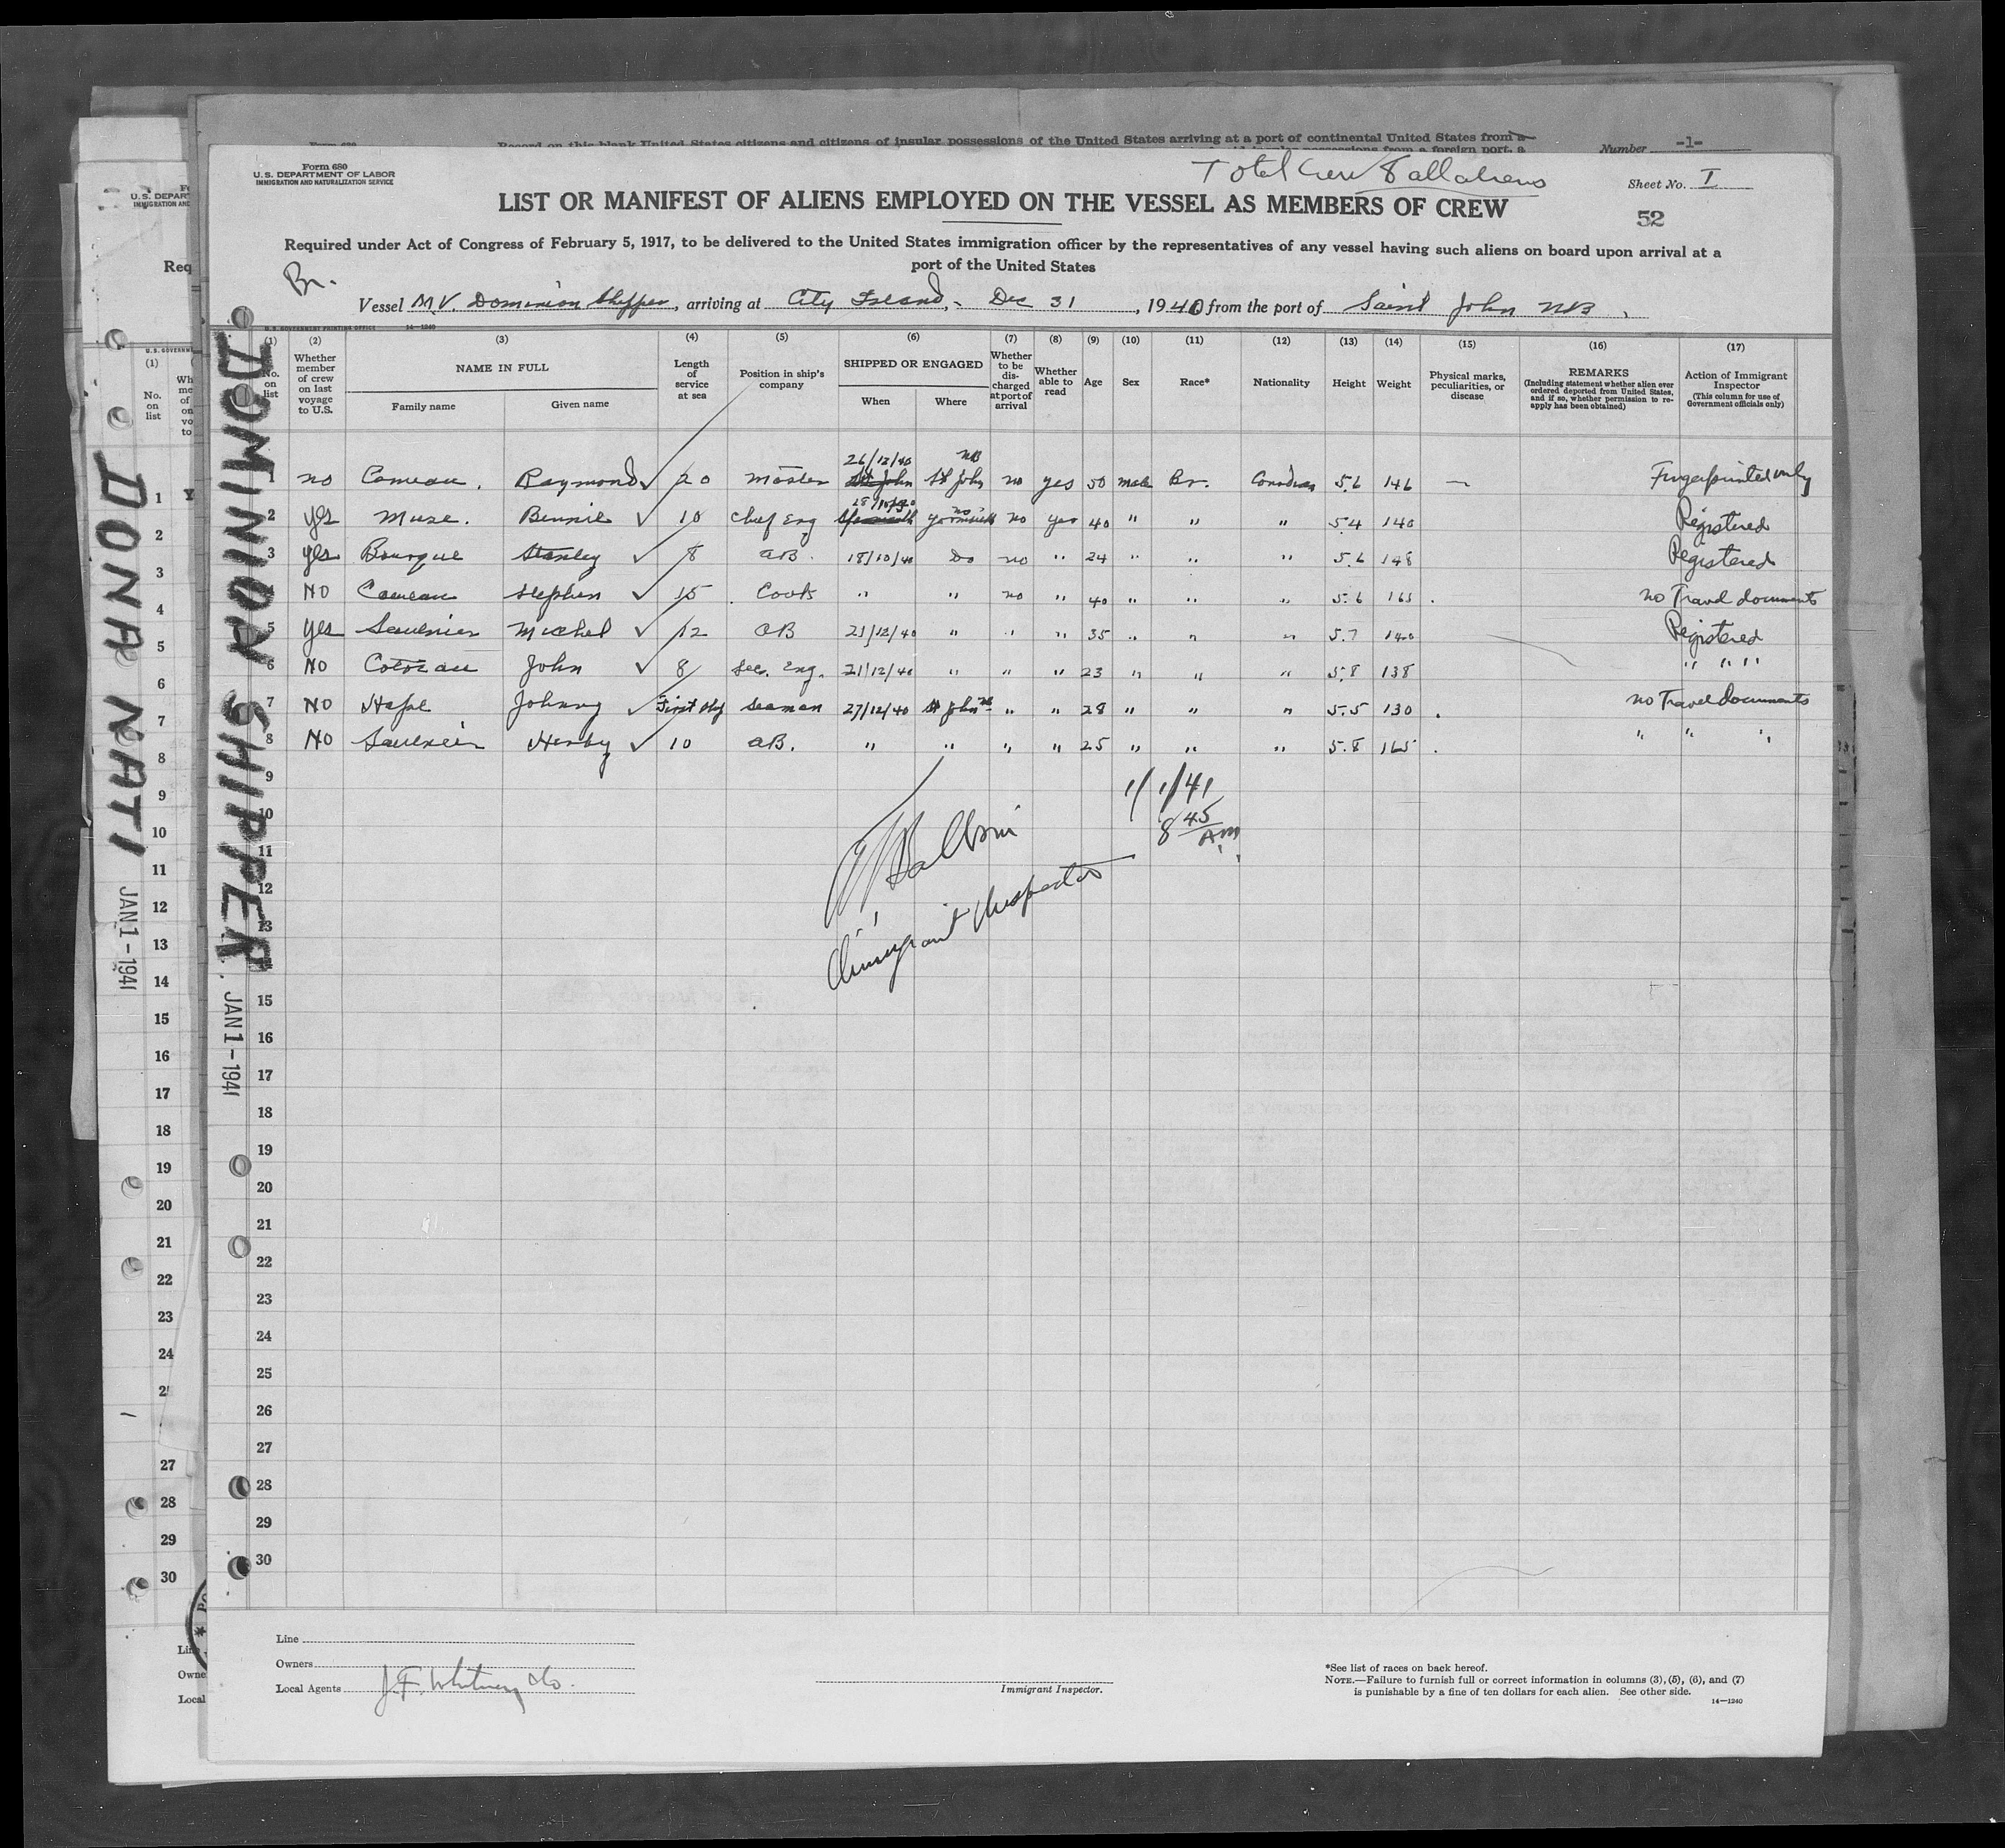 Record on this blank United States citizens and citizens of insular possessions of the United States arriving at a port of continental United States from a
Number -1-
Form 680
U.S. DEPARTMENT OF LABOR
IMMIGRATION AND NATURALIZATION SERVICE
Total Crew 8 all aliens
Sheet No. I
52
LIST OR MANIFEST OF ALIENS EMPLOYED ON THE VESSEL AS MEMBERS OF CREW
Required under Act of Congress of February 5, 1917, to be delivered to the United States immigration officer by the representatives of any vessel having such aliens on board upon arrival at a
port of the United States
Br.
Vessel M.V. Dominion Shipper, arriving at City Island, Dec 31, 1940 from the port of Saint John NB.
U.S. GOVERNMENT PRINTING OFFICE 14—1240
(1) (2) (3) (4) (5) (6) (7) (8) (9) (10) (11) (12) (13) (14) (15) (16) (17)
No. on list
Whether member of crew on last voyage to U.S.
NAME IN FULL
Family name Given name
Length of service at sea
Position in ship's company
SHIPPED OR ENGAGED
When Where
Whether to be discharged at port of arrival
Whether able to read
Age Sex Race* Nationality Height Weight
Physical marks, peculiarities, or disease
REMARKS
(Including statement whether alien ever ordered deported from United States, and if so, whether permission to reapply has been obtained)
Action of Immigrant Inspector
(This column for use of Government officials only)
1 no Comeau. Raymond 20 Master 26/12/40 St John NB no yes 50 male Br. Canadian 5.6 146 — Fingerprinted only
2 yes Muse. Bennie 10 Chief Eng Yarmouth no yes 40 " " " 5.4 140 Registered
3 yes Bourque Stanley 8 AB. 18/10/40 Do no " 24 " " " 5.6 148 Registered
NO Comeau Stephen 15 Cook " " no " 40 " " " 5.6 No Travel documents
5 yes Saulnier Michel 12 AB " " " 35 " " " 5.7 140 Registered
6 NO John 8 Sec. Eng. 21/12/40 " " " 23 " " " 5.8 138 " " "
7 NO Hope Johnny First Trip Seaman 27/12/40 St John NB " " 28 " " " 5.5 130 . No Travel documents
8 NO Saulnier 10 AB. " " " " 25 " " " 5.8 165 . " " "
9
10
11
12
13
14
15
16
17
18
19
20
21
22
23
24
25
26
27
28
29
30
1/1/41
8 45 AM
Immigrant Inspector
DOMINION SHIPPER. JAN 1 - 1941
DONA NATI JAN 1 - 1941
Line
Owners
Local Agents J.F. Whitney Co.
Immigrant Inspector.
*See list of races on back hereof.
NOTE.—Failure to furnish full or correct information in columns (3), (5), (6), and (7)
is punishable by a fine of ten dollars for each alien. See other side.
14—1240